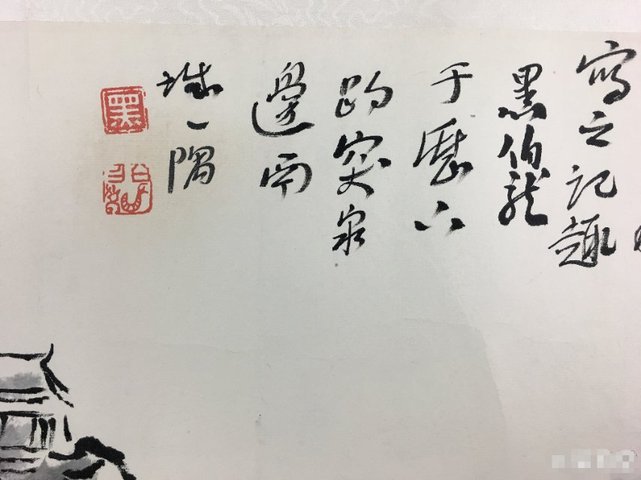 寫之記趣
黑伯龍
于歷下
趵突泉
邊南
城一隅
黑